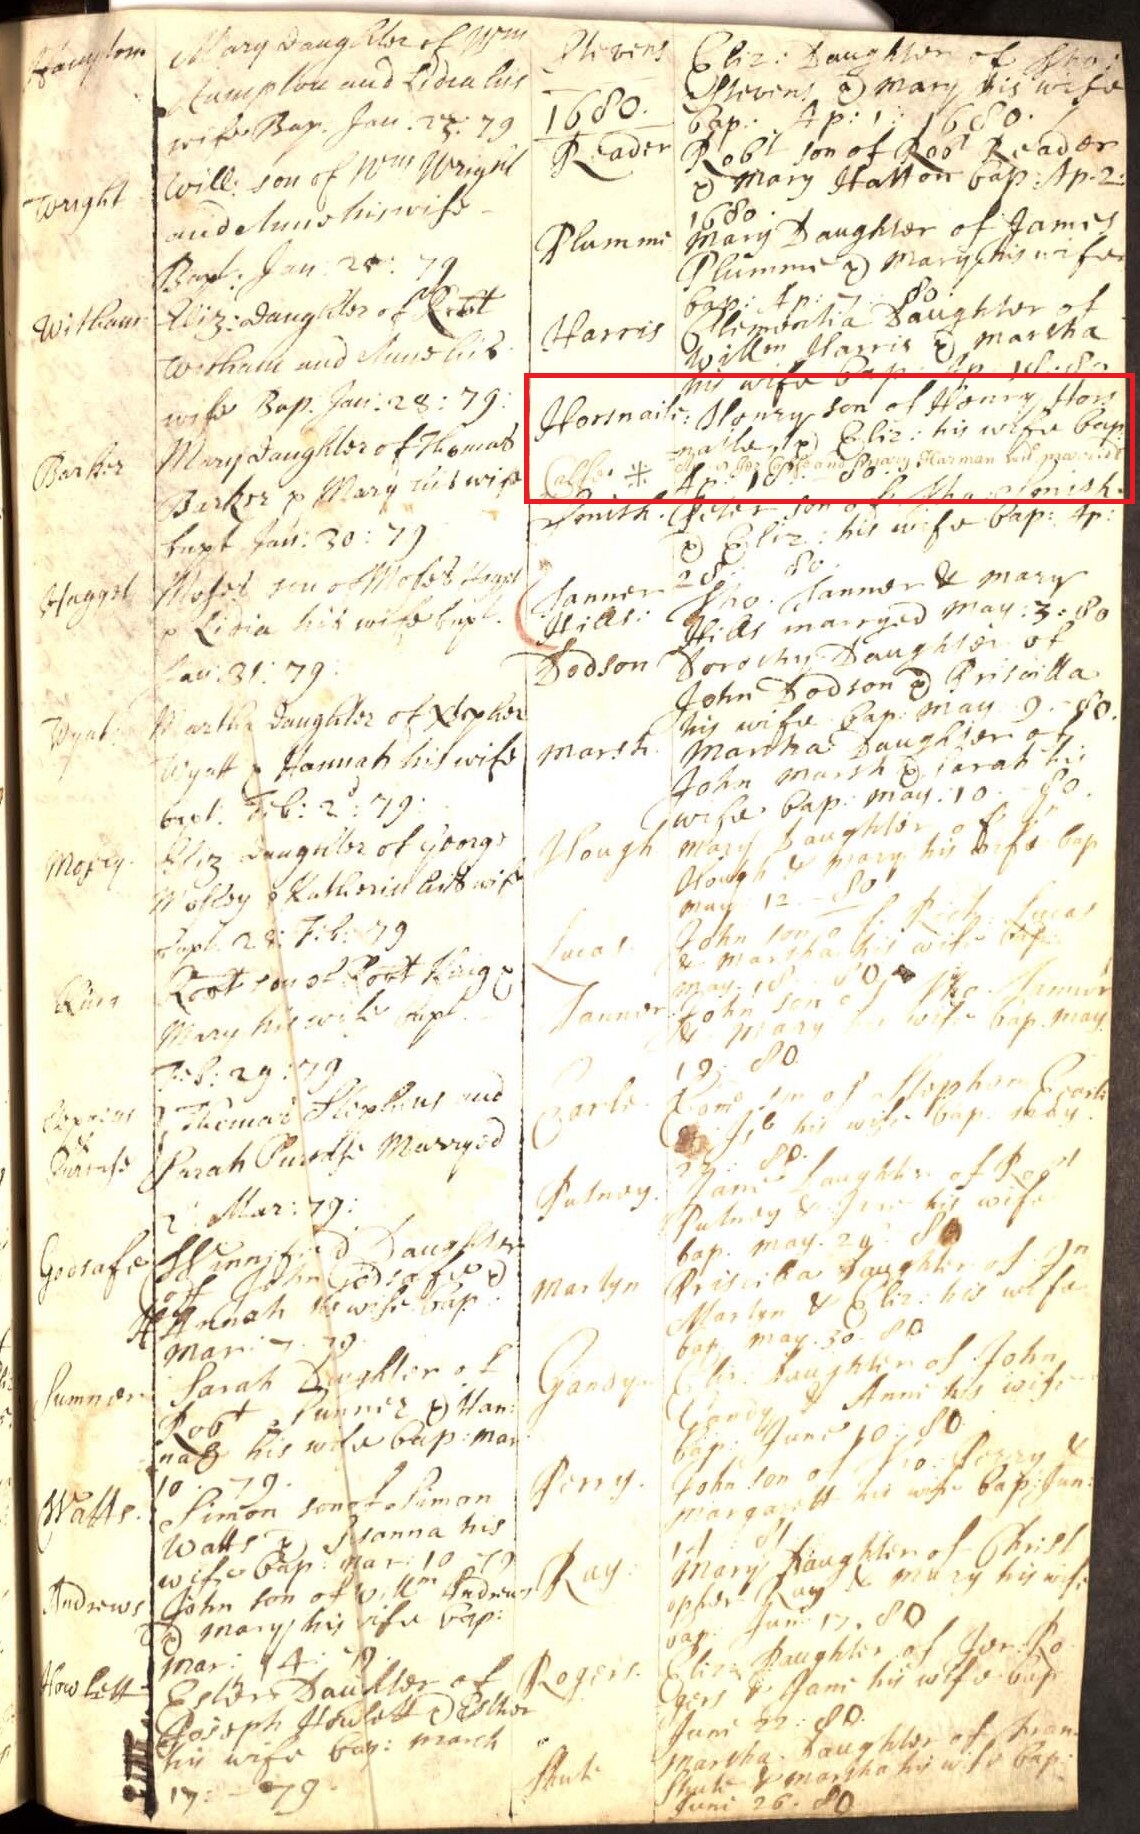 Hampton Mary Daughter of Wm
Hampton and Lidia his
wife Bap. Jan. 23: 79
Wright Will: son of Wm Wright
and Anne his wife
Bapt: Jan: 28: 79
Witham Eliz: daughter of Robt
Witham and Anne his
wife Bap. Jan: 28: 79:
Barker Mary Daughter of Thomas
Barker & Mary his wife
bapt Jan: 30: 79
Haggel Moses son of Moses
& Lidia his wife bapt.
Jan: 31: 79:
Wyat Martha Daughter of Xtopher
Wyatt & Hannah his wife
bapt: Feb: 2d: 79:
Eliz daughter of George
& Katherin his wife
bapt. 28: Feb: 79
King Robt son of Robt King &
Mary his wife bapt.
Feb: 29: 79
Thomas Stephens and
Sarah Marryed
2: Mar: 79:
Godsafe Winnifred Daughter
of John Godsafe &
Hannah his wife bap:
Mar: 7. 79.
Sumner Sarah Daughter of
Robt Sumner & Han:
nah his wife bap: mar
10. 79.
Watts. Simon son of Simon
Watts & Susanna his
wife bap: mar: 10 79
Andrews John son of Willm Andrews
& mary his wife bap:
mar: 14: 79.
Howlett Esther Daughter of
Joseph Howlett & Esther
his wife bap: march
17: - 79.
Stevens Eliz: Daughter of Tho:
Stevens & Mary his wife
1680. bap: Ap: 1: 1680.
Reader Robt son of Robt Reader
& Mary Hatton bap: Ap. 2:
1680.
Plumme Mary Daughter of James
Plumme & Mary his wife
bap: Ap: 7: 80:
Harris Clementia Daughter of
Willm Harris & Martha
his wife bap: Ap: 18: 80
Horsnaile: Henry son of Henry Hors
naile & Eliz: his wife bap:
and Mary Harman married
Ap: 18: - 80
Smith. Peter son of Tho: Smith
& Eliz: his wife bap: Ap:
28: 80.
Tanner Tho. Tanner & Mary
Hills: Hills marryed May: 3: 80
Dodson Dorothy Daughter of
John Dodson & Priscilla
his wife bap: May 9. - 80.
Marsh. Martha Daughter of
John Marsh & Sarah his
wife bap: May. 10 - 80.
Hough Mary Daughter of
Hough & mary his wife bap
may: 12 - 80
Lucas John son of Rich: Lucas
& Martha his wife bap:
may. 18 - 80
Tanner John son of Tho Tanner
& Mary his wife bap may
19: 80
Earle son of Stephen Earle
& his wife bap: may
27: 80.
Putney. Jane Daughter of Robt
Putney & Jane his wife
bap. may. 29: 80
Martyn Priscilla Daughter of Jn
Martyn & Eliz: his wife
bap. may. 30. 80
Gandy Eliz: Daughter of John
Gandy & Anne his wife
bap. June 10: 80
Perry. John son of Tho: Perry &
Margarett his wife bap: Jun:
Ray: Mary Daughter of Christ
opher Ray & Mary his wife
bap: Jun: 17. 80
Rogers. Eliz: Daughter of Jer: Ro
gers & Jane his wife bap
June 22: 80.
Shute Martha Daughter of Fran:
Shute & Martha his wife bap:
June 26. 80